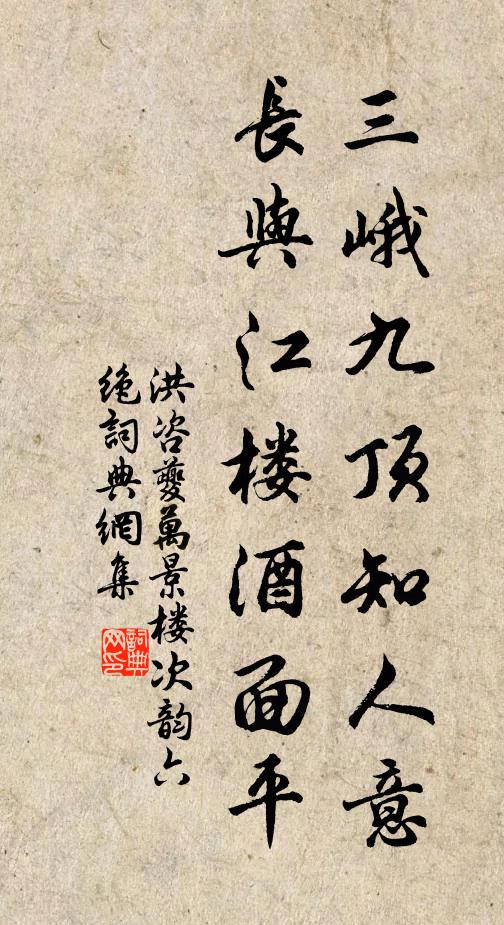 三峨九顶知人意
長與江楼酒面平
洪咨夔萬景楼次韵六
絶詞典網集
詞典
网印